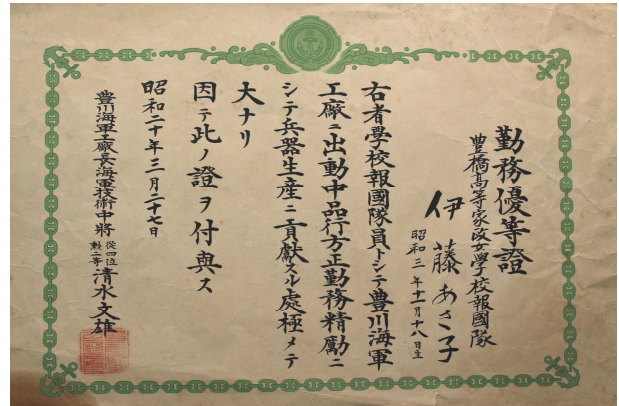 勤務優等證
豊橋高等家政女學校報國隊
伊藤あさ子
昭和三年十一月十八日生
右者學校報國隊員トシテ豊川海軍
工廠ニ出動中品行方正勤務精勵ニ
シテ兵器生産ニ貢献スル處極メテ
大ナリ
因テ此ノ證ヲ付與ス
昭和二十年三月二十七日
豊川海軍工廠長海軍技術中將從四位勲二等清水文雄